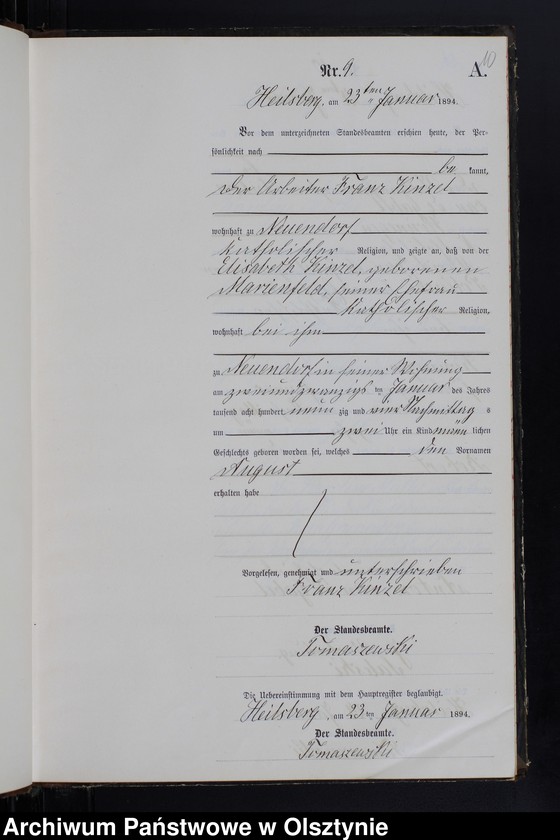 10
Nr. 9.
A.
Heilsberg, am 23ten Januar 1894.
Vor dem unterzeichneten Standesbeamten erschien heute, der Per-
sönlichkeit nach
be kannt,
der Arbeiter Franz Kinzel
wohnhaft zu Neuendorf
katholischer Religion, und zeigte an, daß von der
Elisabeth Kinzel, geborenen
Marienfeld, seiner Ehefrau
katholischer Religion,
wohnhaft bei ihm
zu Neuendorf in seiner Wohnung
am zweiundzwanzigs ten Januar des Jahres
tausend acht hundert neun zig und vier Nachmittag s
um zwei Uhr ein Kind männ lichen
Geschlechts geboren worden sei, welches den Vornamen
August
erhalten habe
Vorgelesen, genehmigt und unterschrieben
Franz Kinzel
Der Standesbeamte.
Tomaszewski
Die Uebereinstimmung mit dem Hauptregister beglaubigt.
Heilsberg, am 23 ten Januar 1894.
Der Standesbeamte.
Tomaszewski
Archiwum Państwowe w Olsztynie